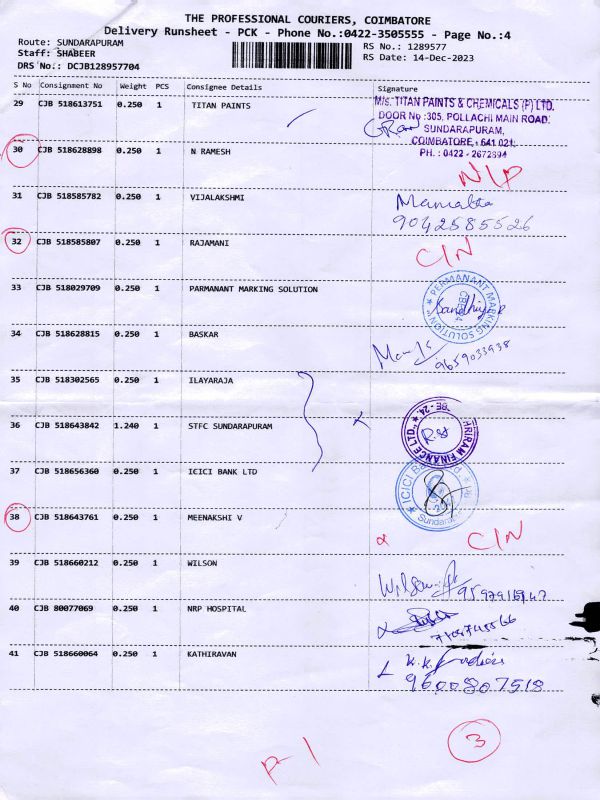 THE PROFESSIONAL COURIERS, COIMBATORE
Delivery Runsheet - PCK - Phone No.:0422-3505555 - Page No.:4
Route: SUNDARAPURAM
RS No.: 1289577
Staff: SHABEER
RS Date: 14-Dec-2023
DRS No.: DCJB128957704
S No Consignment No Weight PCS Consignee Details Signature
29 CJB 518613751 0.250 1 TITAN PAINTS
M/s. TITAN PAINTS & CHEMICALS (P) LTD.
DOOR No :305, POLLACHI MAIN ROAD.
SUNDARAPURAM,
COIMBATORE - 641 021.
PH. : 0422 - 2672894
30 CJB 518628898 0.250 1 N RAMESH
N/P
31 CJB 518585782 0.250 1 VIJALAKSHMI
9042585526
32 CJB 518585807 0.250 1 RAJAMANI C/N
33 CJB 518029709 0.250 1 PARMANANT MARKING SOLUTION
PERMANANT MARKING SOLUTION
34 CJB 518628815 0.250 1 BASKAR
9659033938
35 CJB 518302565 0.250 1 ILAYARAJA
36 CJB 518643842 1.240 1 STFC SUNDARAPURAM
SHRIRAM FINANCE LTD.
37 CJB 518656360 0.250 1 ICICI BANK LTD
ICICI Bank
38 CJB 518643761 0.250 1 MEENAKSHI V
C/N
39 CJB 518660212 0.250 1 WILSON
Wilson
40 CJB 80077069 0.250 1 NRP HOSPITAL
41 CJB 518660064 0.250 1 KATHIRAVAN
9600807518
P-1
3